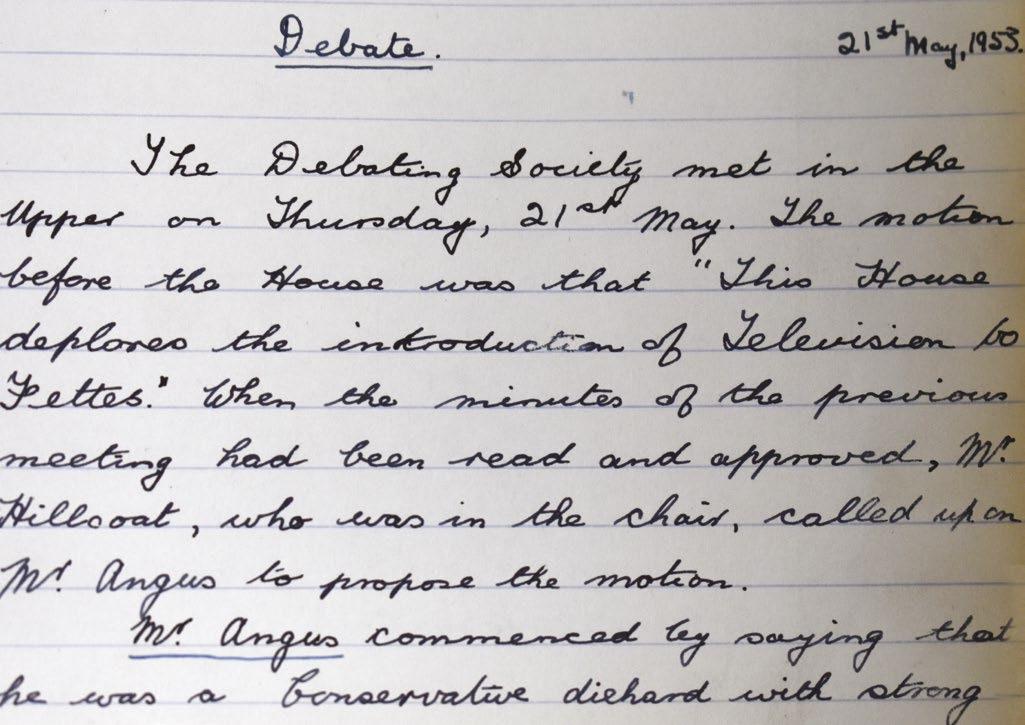 Debate. 21st May, 1953.
The Debating Society met in the
Upper on Thursday, 21st May. The motion
before the House was that "This House
deplores the introduction of Television to
Fettes." When the minutes of the previous
meeting had been read and approved, Mr.
Hillcoat, who was in the chair, called upon
Mr. Angus to propose the motion.
Mr. Angus commenced by saying that
he was a Conservative diehard with strong